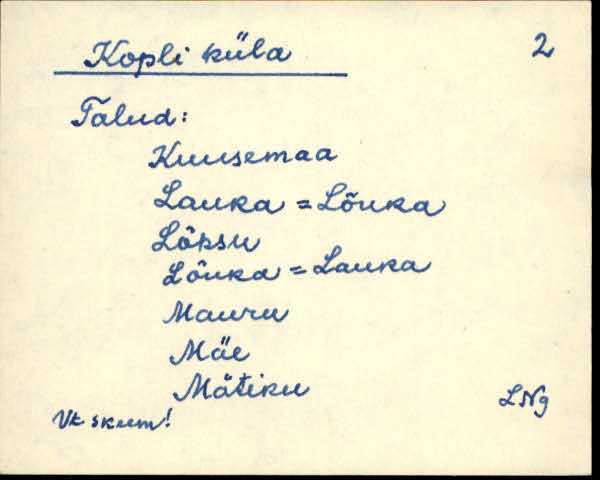 Kopli küla 2
Talud:
Kuusemaa
Lauka = Lõuka
Lõpsu
Lõuka = Lauka
Mauru
Mäe
Mätiku
Vt skeem!
LNg